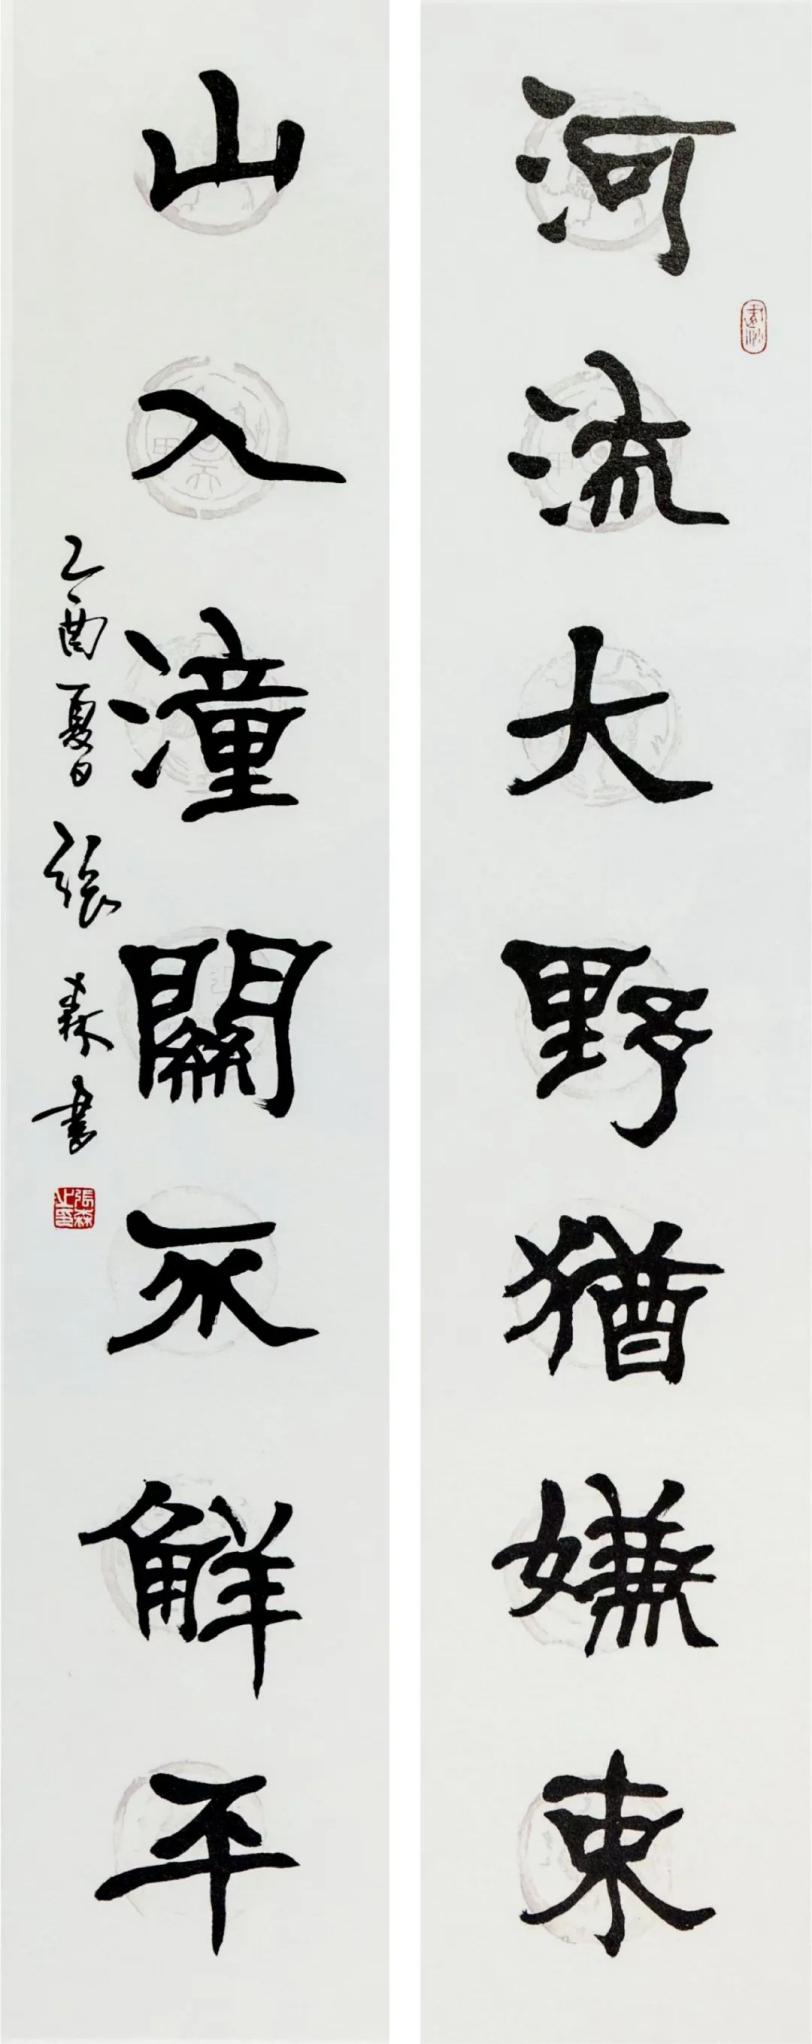 河流大野猶嫌束
山入潼關不解平
乙酉夏日張森書
張森之印